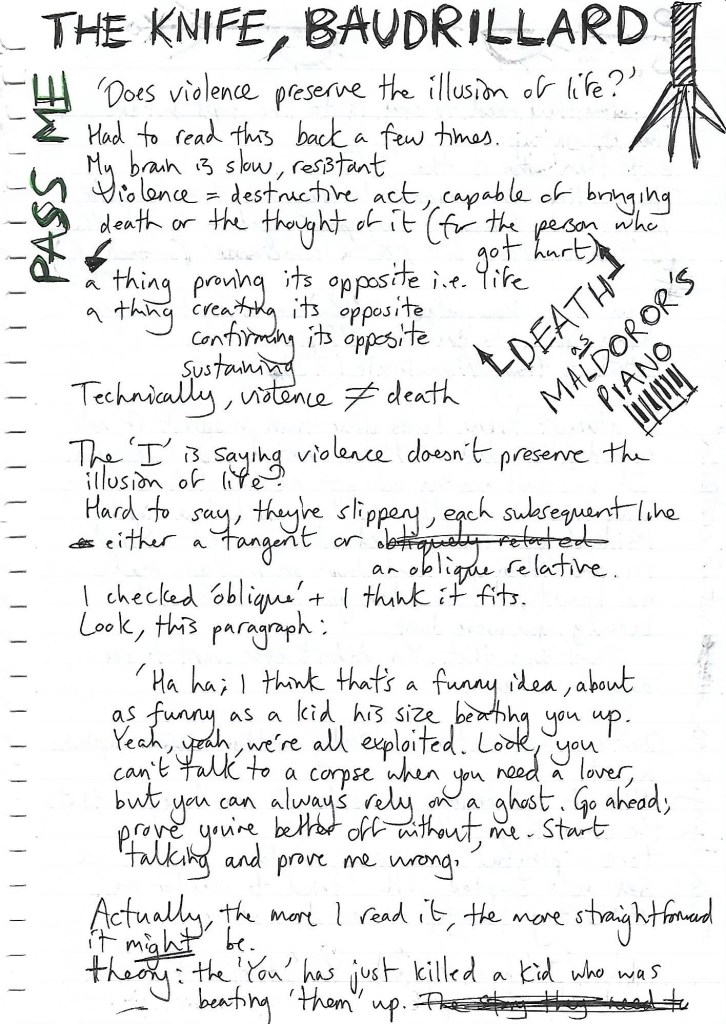 PASS ME THE KNIFE, BAUDRILLARD
'Does violence preserve the illusion of life?'
Had to read this back a few times.
My brain is slow, resistant
Violence = destructive act, capable of bringing
death or the thought of it (for the person who
got hurt)
a thing proving its opposite i.e. life
a thing creating its opposite
confirming its opposite
sustaining
DEATH
as
MALDOROR'S
PIANO
Technically, violence ≠ death
The 'I' is saying violence doesn't preserve the
illusion of life?
Hard to say, they're slippery, each subsequent line
either a tangent or obliquely related
an oblique relative.
I checked 'oblique' + I think it fits.
Look, this paragraph:
'Ha ha; I think that's a funny idea, about
as funny as a kid his size beating you up.
Yeah, yeah, we're all exploited. Look, you
can't talk to a corpse when you need a lover,
but you can always rely on a ghost. Go ahead;
prove you're better off without me. Start
talking and prove me wrong.
Actually, the more I read it, the more straightforward
it might be.
theory: the 'You' has just killed a kid who was
beating 'them' up. The story they need to